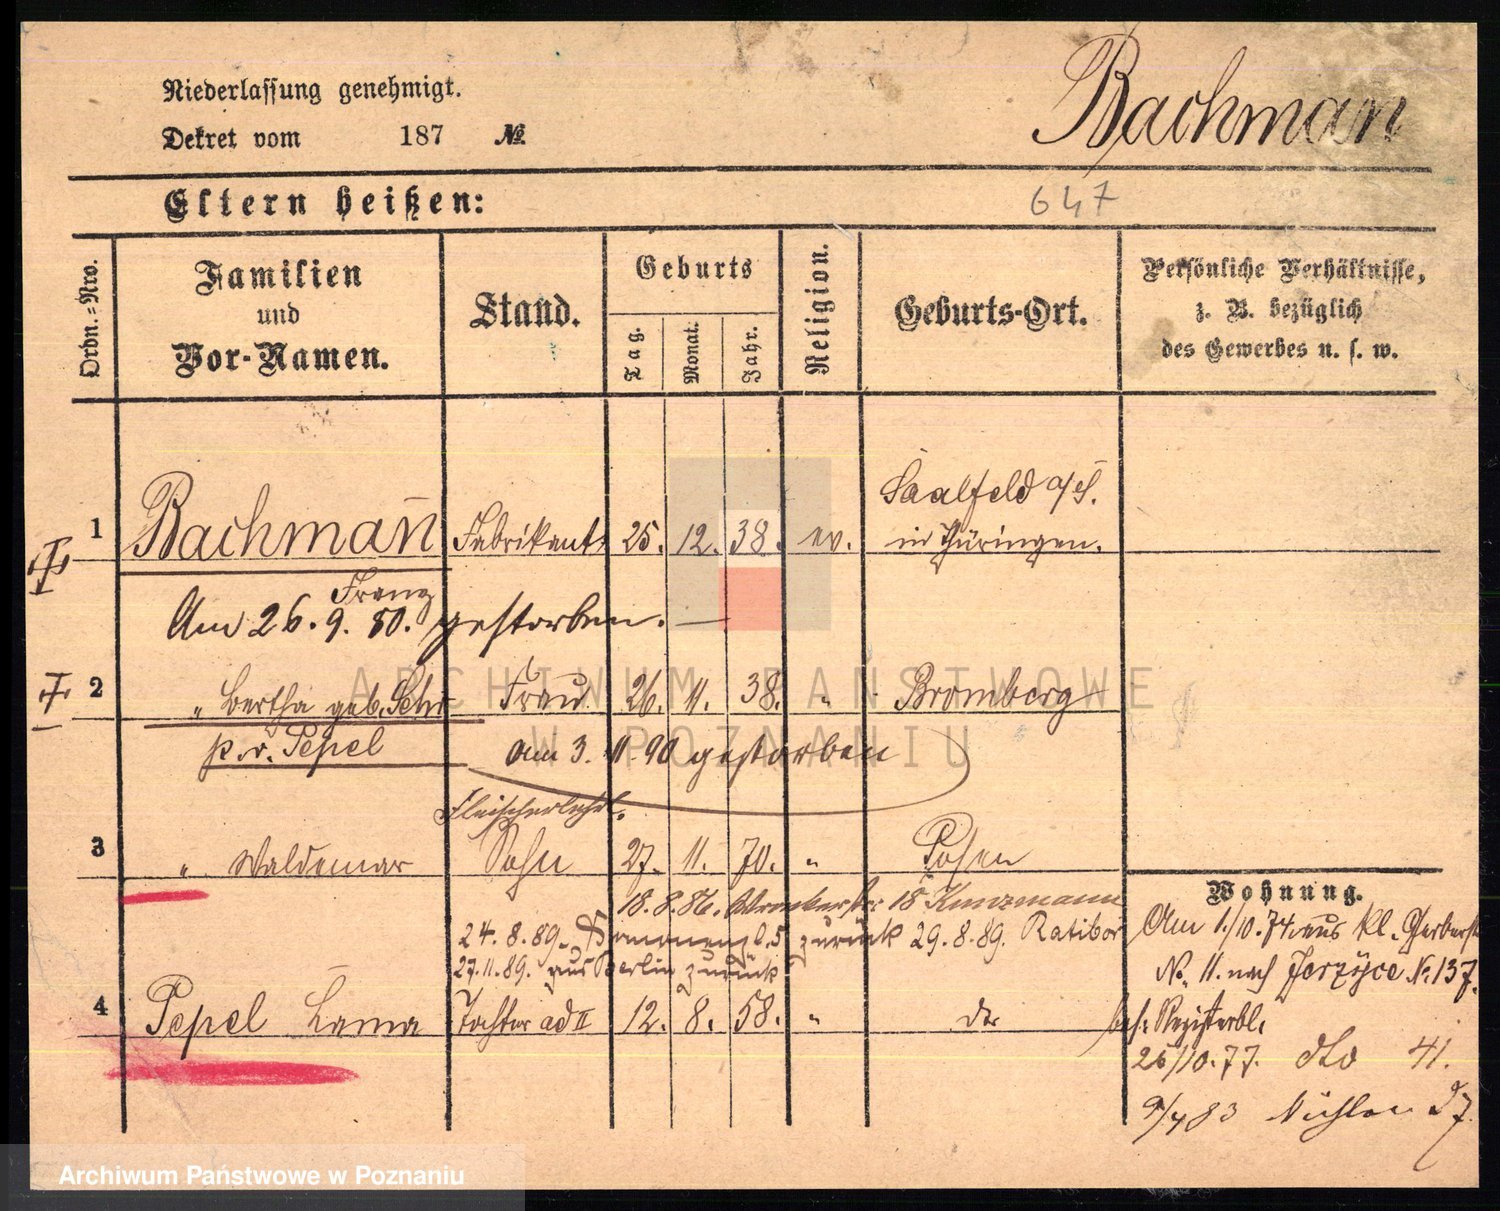 Niederlassung genehmigt.
Dekret vom 187 №
Bachman
Eltern heißen:
647
Ordn.=Nro.
Familien
und
Vor-Namen.
Stand.
Geburts
Tag.
Monat.
Jahr.
Religion.
Geburts-Ort.
Persönliche Verhältnisse,
z. B. bezüglich
des Gewerbes u. s. w.
Saalfeld a/S.
1 Bachman̄ Fabrikant 25. 12. 38. ev. in Thüringen.
Franz
Am 26. 9. 80. gestorben. —
2 " Bertha geb. Frau 26. 11. 38. " Bromberg
p. v. Pepel am 3. 11. 90 gestorben
Fleischerlehrl.
3 " Waldemar Sohn 27. 11. 70. " Posen
18. 8. 86. 18 Kunzmann
24. 8. 89. zurück 29. 8. 89. Ratibor
27. 11. 89. aus Berlin zurück
4 Pepel Tochter ad II 12. 8. 58. " do
Wohnung.
Am 1./10. 74 aus kl. Gerberstr
No. 11. nach Jerzyce No. 137.
bes. Registerbl.
26/10. 77. dto 41.
83 27
ARCHIWUM PAŃSTWOWE
W POZNANIU
Archiwum Państwowe w Poznaniu